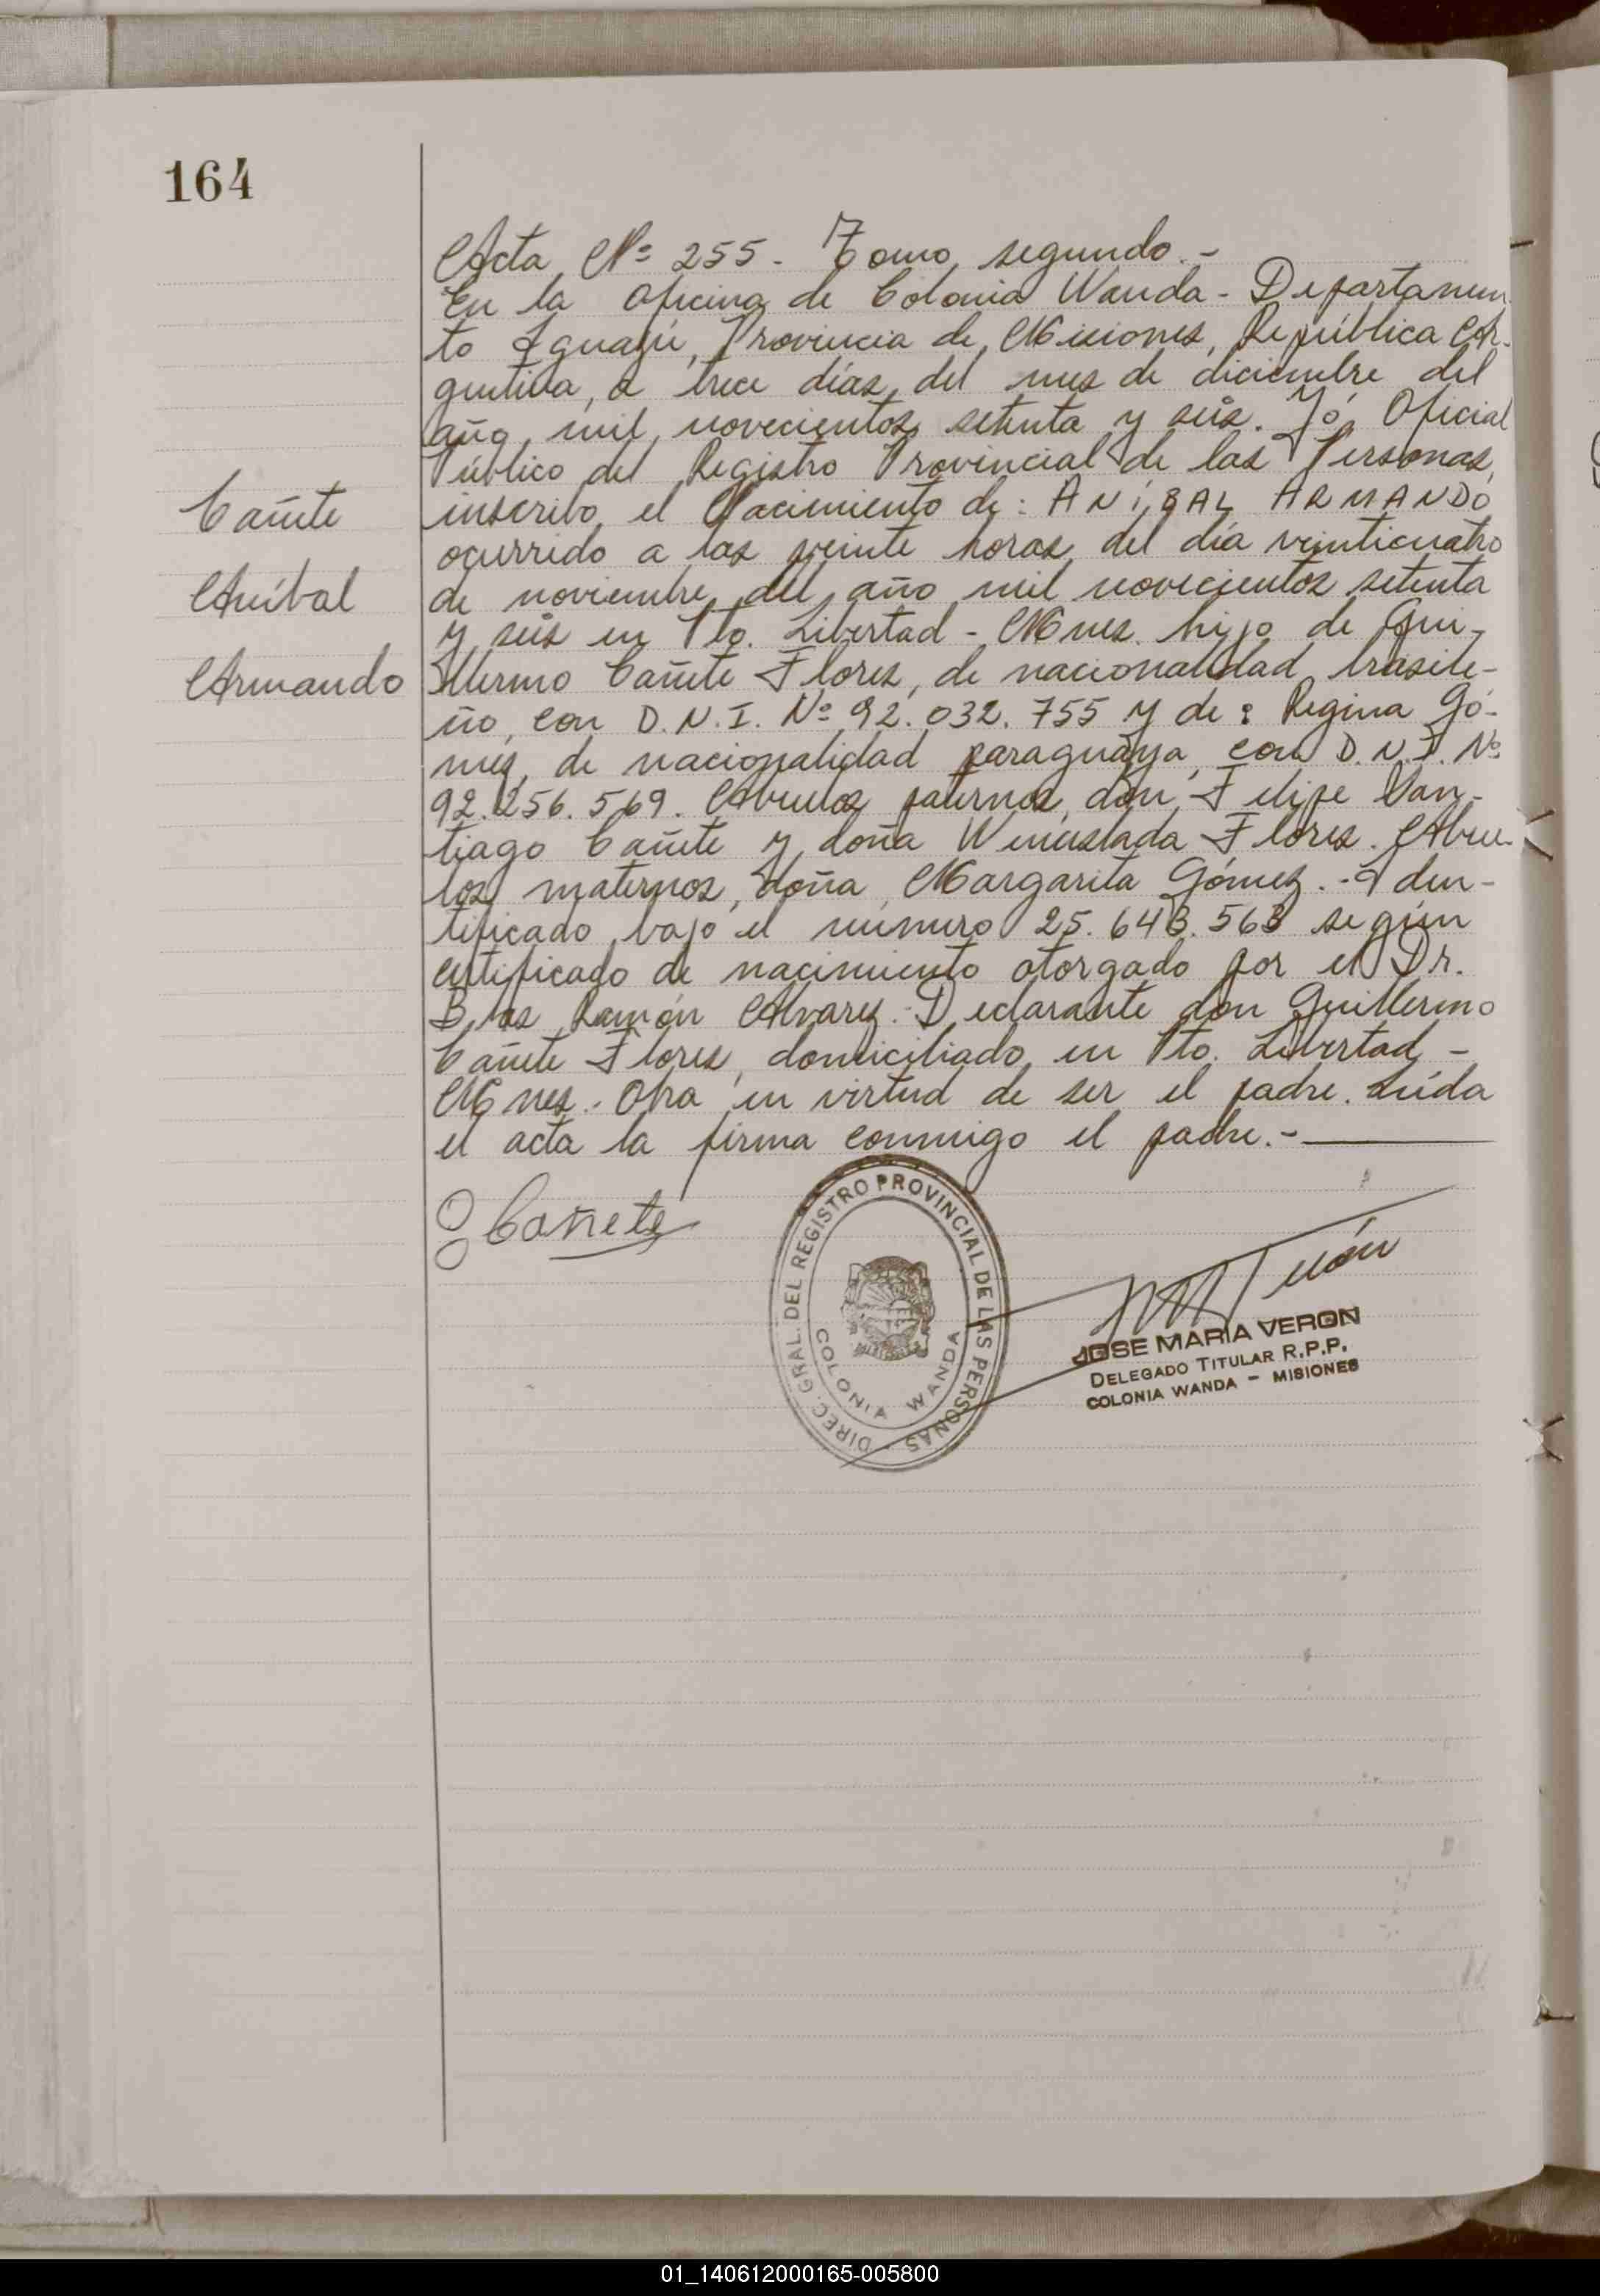 164
Acta Nº 255. Tomo segundo.-
En la Oficina de Colonia Wanda - Departamen
to Iguazú, Provincia de Misiones, República Ar-
gentina, a trece días del mes de diciembre del
año mil novecientos setenta y seis. Yó, Oficial
Público del Registro Provincial de las Personas,
Cañete
inscribo el Nacimiento de: ANÍBAL ARMANDO
ocurrido a las veinte horas del día veinticuatro
Aníbal
de noviembre del año mil novecientos setenta
y seis en Pto. Libertad - Mnes. hijo de Gui-
Armando
llermo Cañete Flores, de nacionalidad brasile-
ño, con D.N.I. Nº 92.032.755 y de: Regina Gó-
mez, de nacionalidad paraguaya, con D.N.I. Nº
92.256.569. Abuelos paternos, don Felipe San-
tiago Cañete y doña Wenceslada Flores. Abue-
los maternos, doña Margarita Gómez.- Iden-
tificado bajo el número 25.643.563 según
certificado de nacimiento otorgado por el Dr.
Blas Ramón Alvarez. Declarante don Guillermo
Cañete Flores, domiciliado en Pto. Libertad -
Mnes. Obra en virtud de ser el padre. Leída
el acta la firma conmigo el padre.-
Cañete
DIREC. GRAL. DEL REGISTRO PROVINCIAL DE LAS PERSONAS
COLONIA WANDA
JOSE MARIA VERON
DELEGADO TITULAR R.P.P.
COLONIA WANDA - MISIONES
01_140612000165-005800